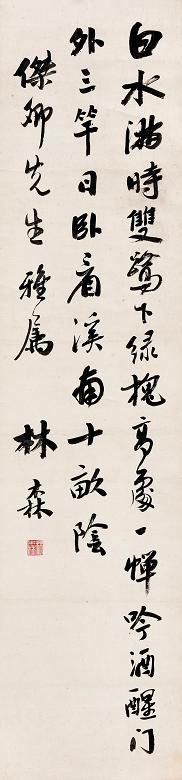 白水滿時雙鷺下綠槐高處一蟬吟酒醒门
外三竿日卧看溪南十畝陰
傑卿先生雅属
林森